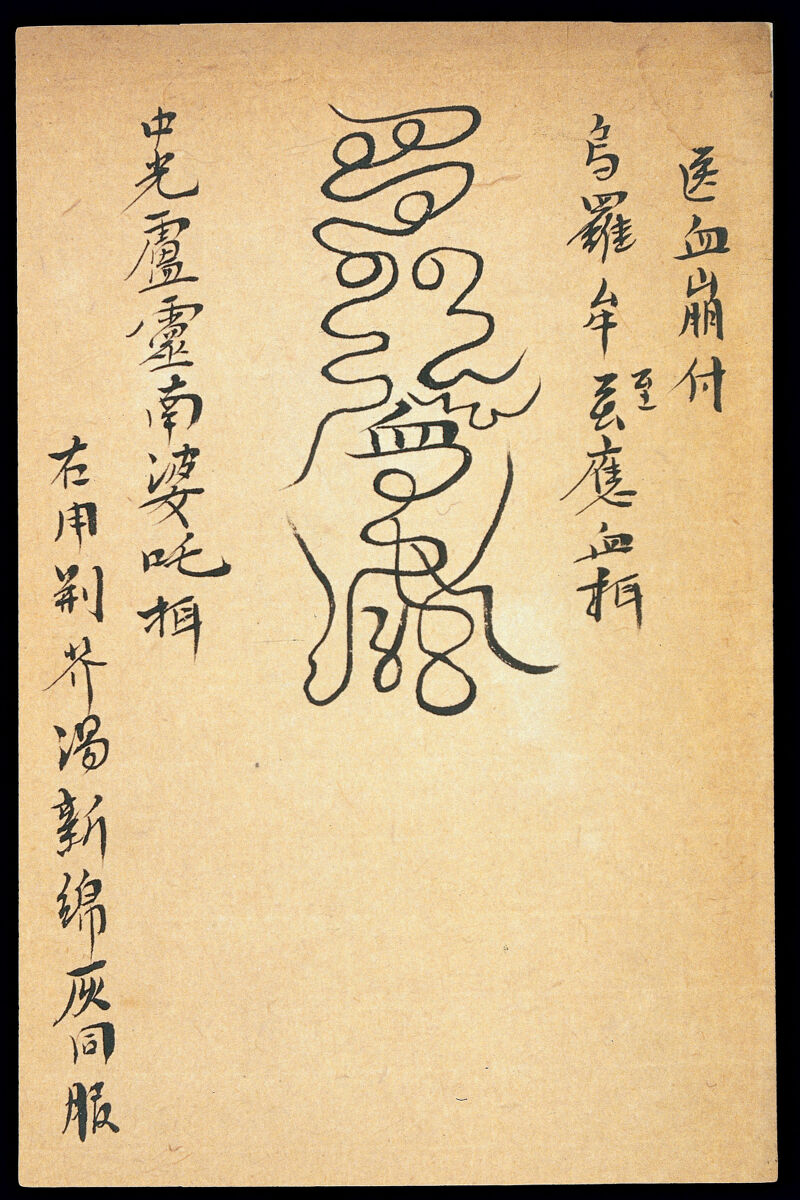 医血崩付
烏羅牟至玄應血枏
中光盧靈南婆吒枏
右用荆芥湯新綿灰同服